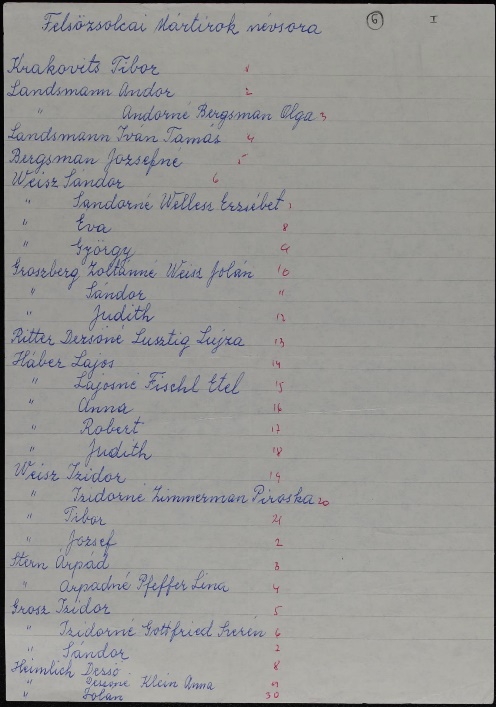 Felsőzsolcai Mártirok névsora 6 I
Krakovits Tibor 1
Landsmann Andor 2
" Andorné Bergsman Olga 3
Landsmann Iván Tamás 4
Bergsman Józsefné 5
Weisz Sándor 6
" Sándorné Welless Erzsébet
" Éva 8
" György 9
Groszberg Zoltánné Weisz Jolán 10
" Sándor 11
" Judith 12
Ritter Dezsőné Lusztig Lujza 13
Háber Lajos 14
" Lajosné Fischl Etel 15
" Anna 16
" Robert 17
" Judith 18
Weisz Izidor 19
" Izidorné Zimmerman Piroska 20
" Tibor 21
" József 2
Stern Árpád 3
" Árpádné Pfeffer Lina 4
Grosz Izidor 5
" Izidorné Gottfried Szerén 6
" Sándor
Heimlich Dezső 8
" Dezsőné Klein Anna 29
" Jolán 30